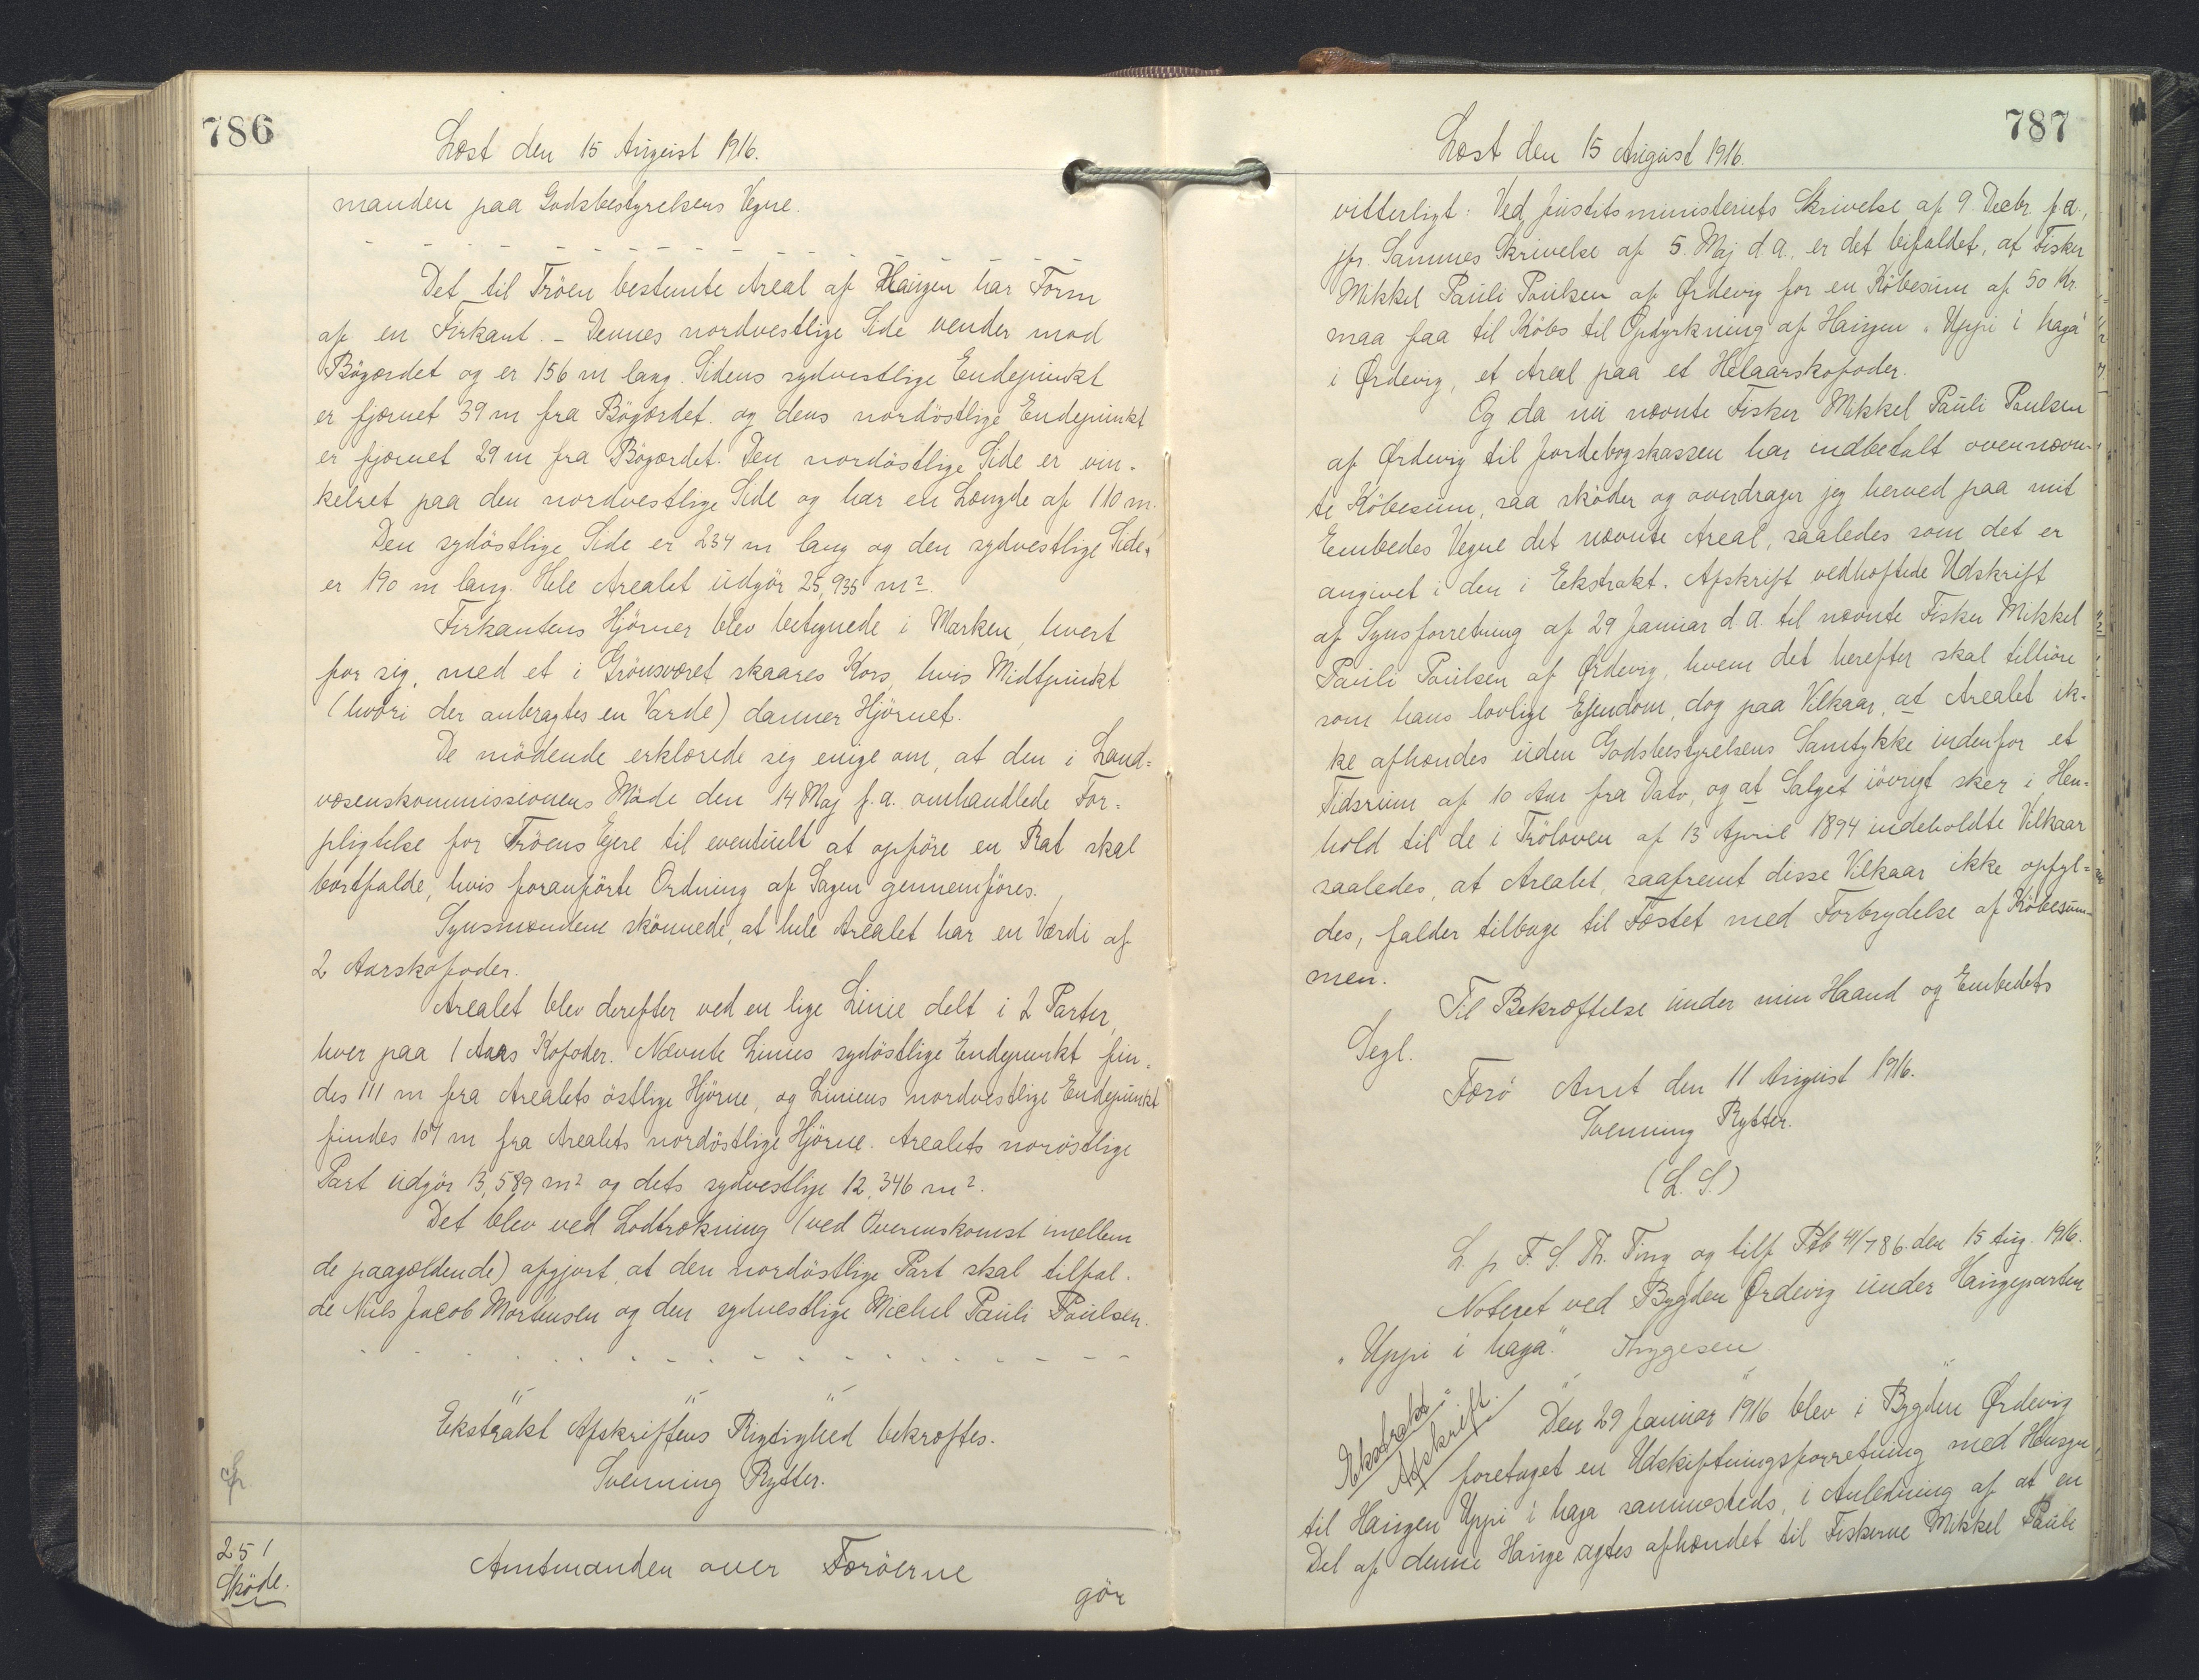 786
Læst den 15 August 1916.
manden paa Godsbestyrelsens Vegne.
Det til Tröen bestemte Areal af Haugen har Form
af en Firkant. - Dennes nordvestlige Side vender mod
Bögærdet og er 156 m lang. Sidens sydvestlige Endepunkt
er fjærnet 39 m fra Bögærdet og dens nordöstlige Endepunkt
er fjærnet 29 m fra Bögærdet. Den nordöstlige Side er vin-
kelret paa den nordvestlige Side og har en Længde af 110 m.
Den sydöstlige Side er 234 m lang og den sydvestlige Side
er 190 m lang. Hele Arealet udgör 25,935 m².
Firkantens Hjörner blev betegnede i Marken, hvert
for sig, med et i Grönsværet skaares Kors, hvis Midtpunkt
(hvori der anbragtes en Varde) danner Hjörnet.
De mödende erklærede sig enige om, at den i Land=
væsenskommissionens Möde den 14 Maj f.a. omhandlede For-
pligtelse for Tröens Ejere til eventuelt at opföre en Rat skal
bortfalde, hvis foranförte Ordning af Sagen gennemföres.
Synsmændene skönnede, at hele Arealet har en Værdi af
2 Aarskofoder.
Arealet blev derefter ved en lige Linie delt i 2 Parter,
hver paa 1 Aars Kofoder. Nævnte Linies sydöstlige Endepunkt fin-
des 111 m fra Arealets östlige Hjörne, og Liniens nordvestlige Endepunkt
findes 107 m fra Arealets nordöstlige Hjörne. Arealets noröstlige
Part udgör 13,589 m² og dets sydvestlige 12,346 m².
Det blev ved Lodtrækning (ved Overenskomst imellem
de paagældende) afgjort, at den nordöstlige Part skal tilfal-
de Nils Jacob Mortensen og den sydvestlige Michel Pauli Poulsen.
Ekstrakt Afskriftens Rigtighed bekræftes.
Svenning Rytter.
251
Sköde.
Amtmanden over Færöerne
gör
787
Læst den 15 August 1916.
vitterligt: Ved Justitsministeriets Skrivelse af 9. Decbr. f.a.,
jfr. Sammes Skrivelse af 5. Maj d.a. er det bifaldet, at Fisker
Mikkel Pauli Poulsen af Ørdevig for en Köbesum af 50 Kr.
maa faa til Köbs til Opdyrkning af Haugen "Uppi i haga"
i Ørdevig, et Areal paa et Helaarskofoder.
Og da nu nævnte Fisker Mikkel Pauli Poulsen
af Ørdevig til Jordebogskassen har indbetalt ovennævn-
te Köbesum, saa sköder og overdrager jeg herved paa mit
Embedes Vegne det nævnte Areal, saaledes som det er
angivet i den i Ekstrakt-Afskrift vedhæftede Udskrift
af Synsforretning af 29 Januar d.a. til nævnte Fisker Mikkel
Pauli Poulsen af Ørdevig, hvem det herefter skal tilhöre
som hans lovlige Ejendom, dog paa Vilkaar, at Arealet ik-
ke afhændes uden Godsbestyrelsens Samtykke indenfor et
Tidsrum af 10 Aar fra Dato, og at Salget iövrigt sker i Hen-
hold til de i Tröloven af 13 April 1894 indeholdte Vilkaar
saaledes, at Arealet, saafremt disse Vilkaar ikke opfyl=
des, falder tilbage til Fæstet med Fortrydelse af Köbesum-
men.
Til Bekræftelse under min Haand og Embedets
Segl.
Færö Amt den 11 August 1916.
Svenning Rytter.
(L. S.)
L. p. F. S. Th. Ting og tilf. Ptb 41/786. den 15 Aug. 1916.
Noteret ved Bygden Ørdevig under Haugeparten
"Uppi i haga." Trygesen
Ekstrakt-
Afskrift.
Den 29 Januar 1916 blev i Bygden Ørdevig
foretaget en Udskiftningsforretning med Hensyn
til Haugen Uppi i haga sammesteds, i Anledning af at en
Del af denne Hauge agtes afhændet til Fiskerne Mikkel Pauli